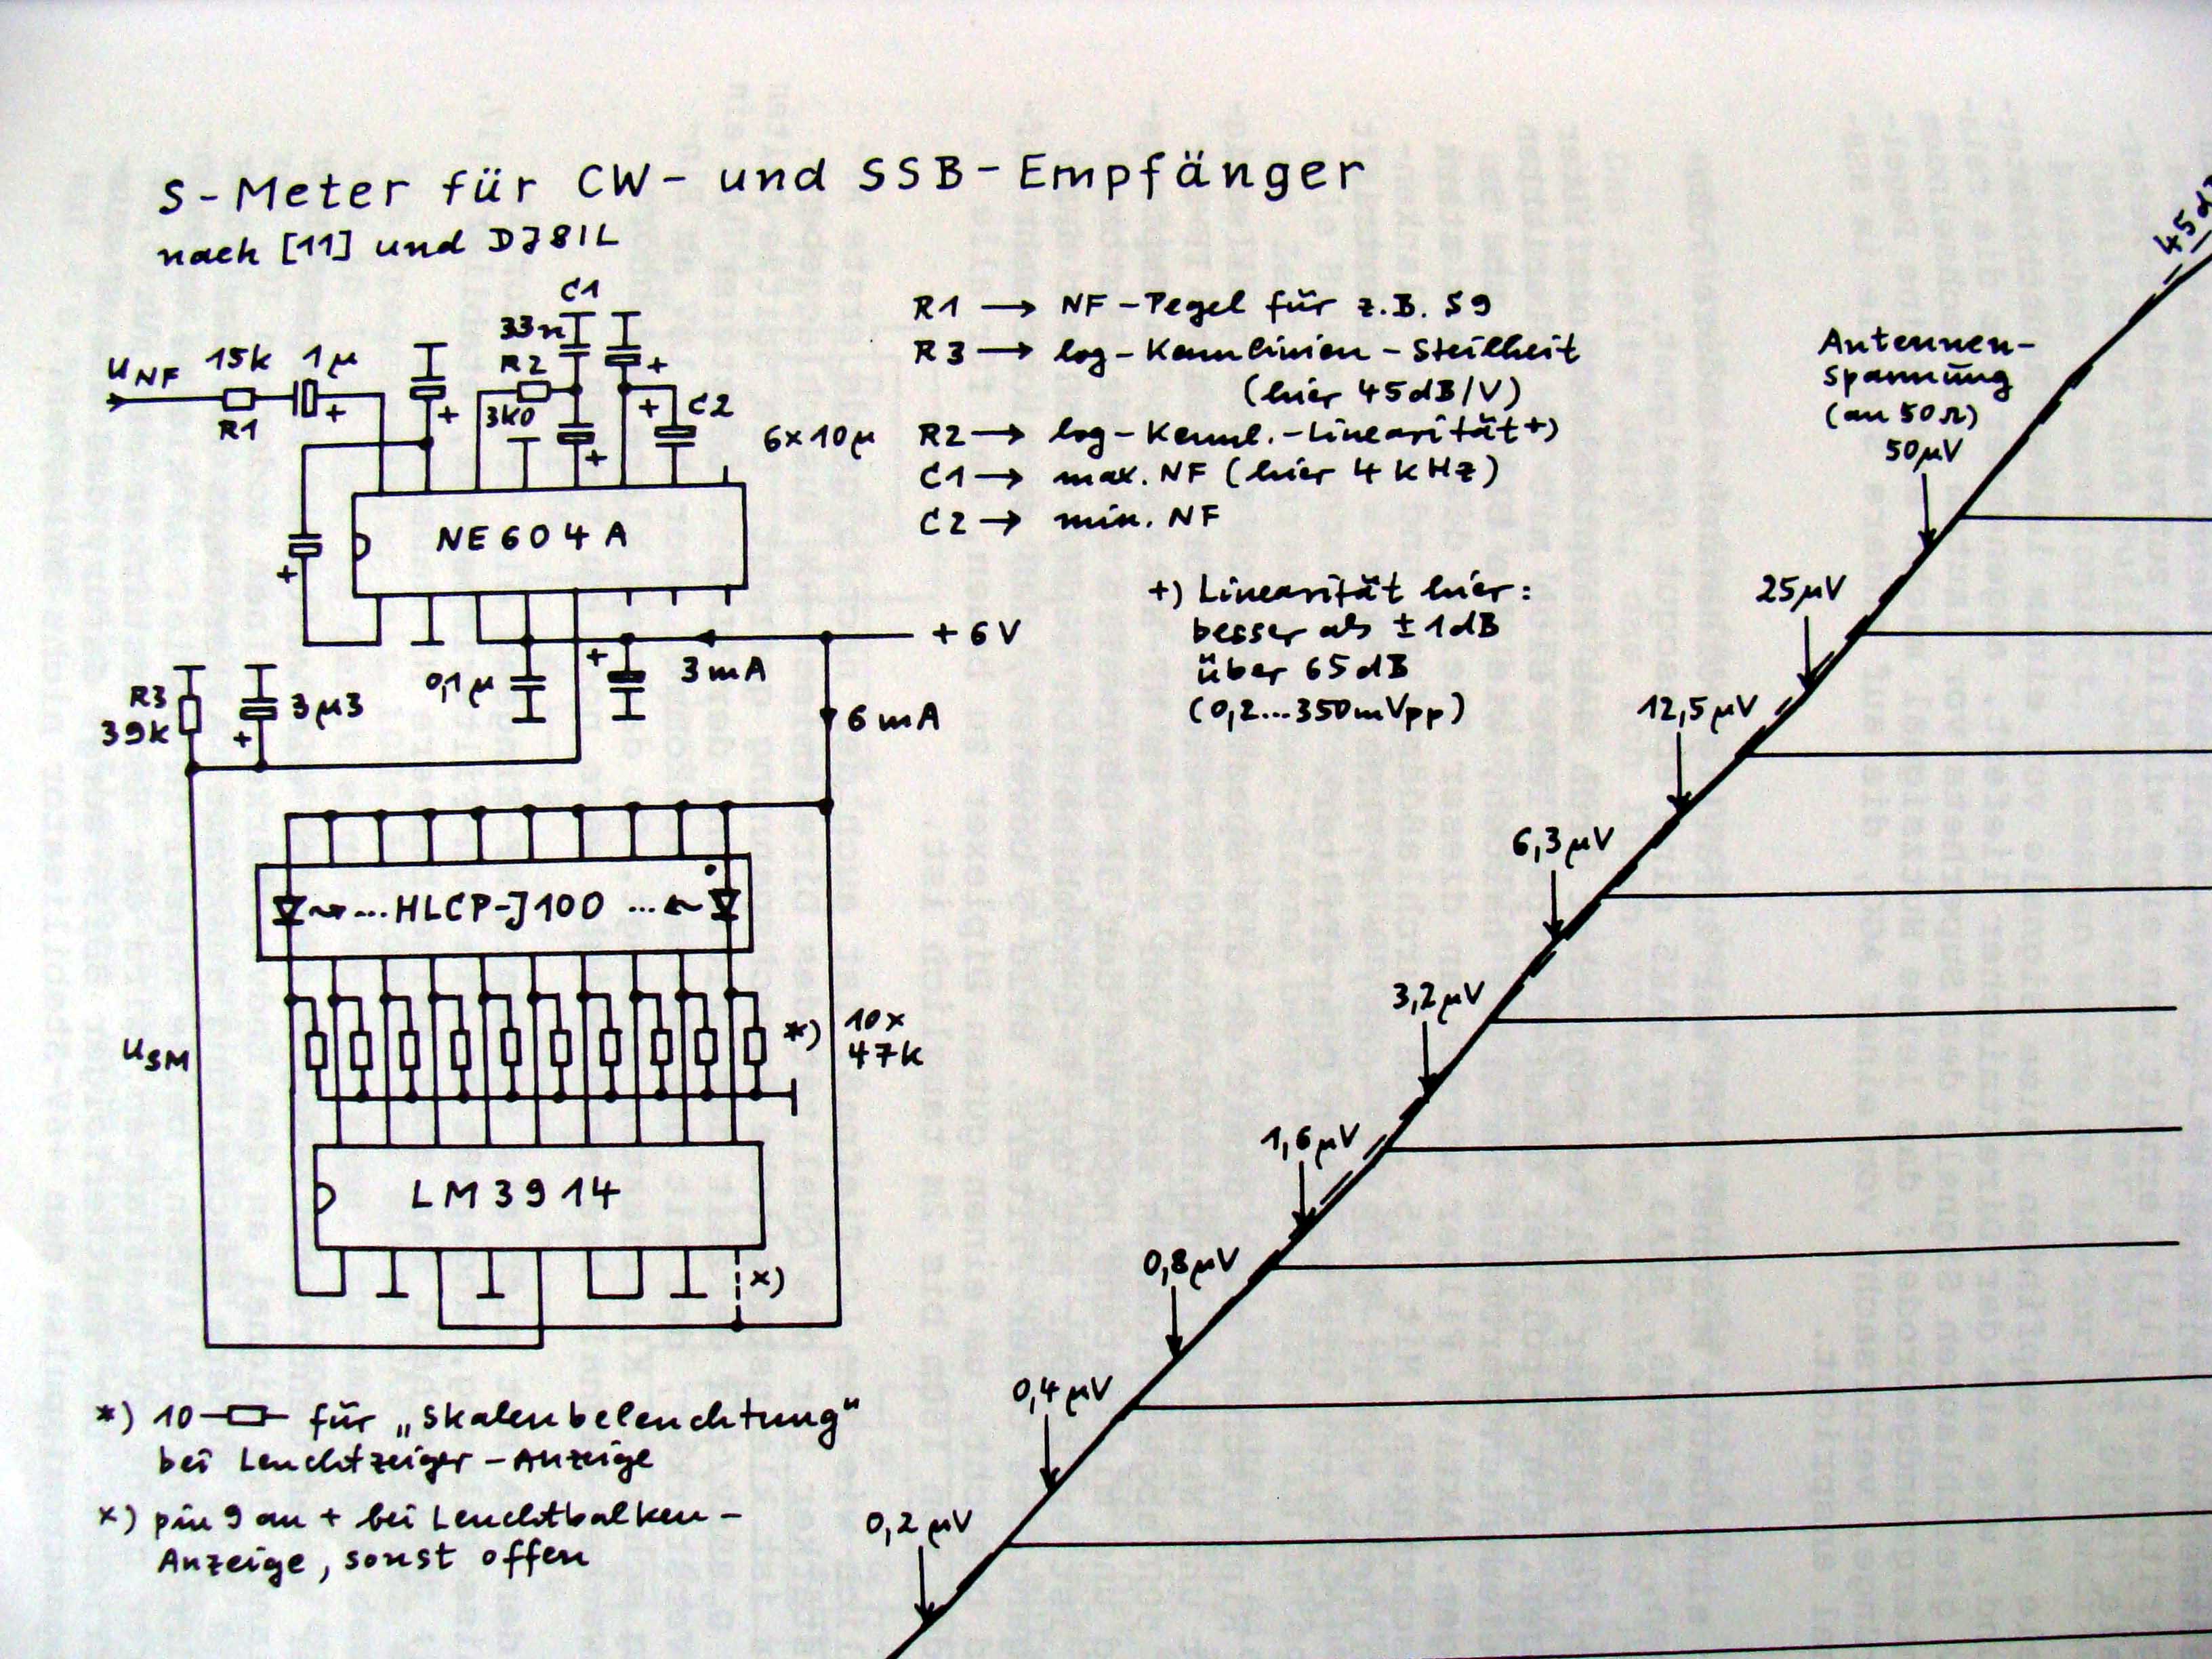 S-Meter für CW- und SSB-Empfänger
nach [11] und DJ8IL
C1
33n
UNF
15k
1µ
R2
+
+
R1
+
+
3k0
+
C2
6x10µ
NE604A
+
+6V
+
3mA
0,1µ
R3
39k
3µ3
+
6mA
...HLCP-J100...
USM
*)
10x
47k
LM3914
x)
*) 10 für „Skalenbeleuchtung“
bei Leuchtzeiger-Anzeige
x) pin 9 an + bei Leuchtbalken-
Anzeige, sonst offen
R1 → NF-Pegel für z.B. S9
R3 → log-Kennlinien-Steilheit
(hier 45dB/V)
R2 → log-Kennl.-Linearität+)
C1 → max. NF (hier 4kHz)
C2 → min. NF
+) Linearität hier:
besser als ±1dB
über 65dB
(0,2...350mVpp)
Antennen-
spannung
(an 50Ω)
50µV
25µV
12,5µV
6,3µV
3,2µV
1,6µV
0,8µV
0,4µV
0,2µV